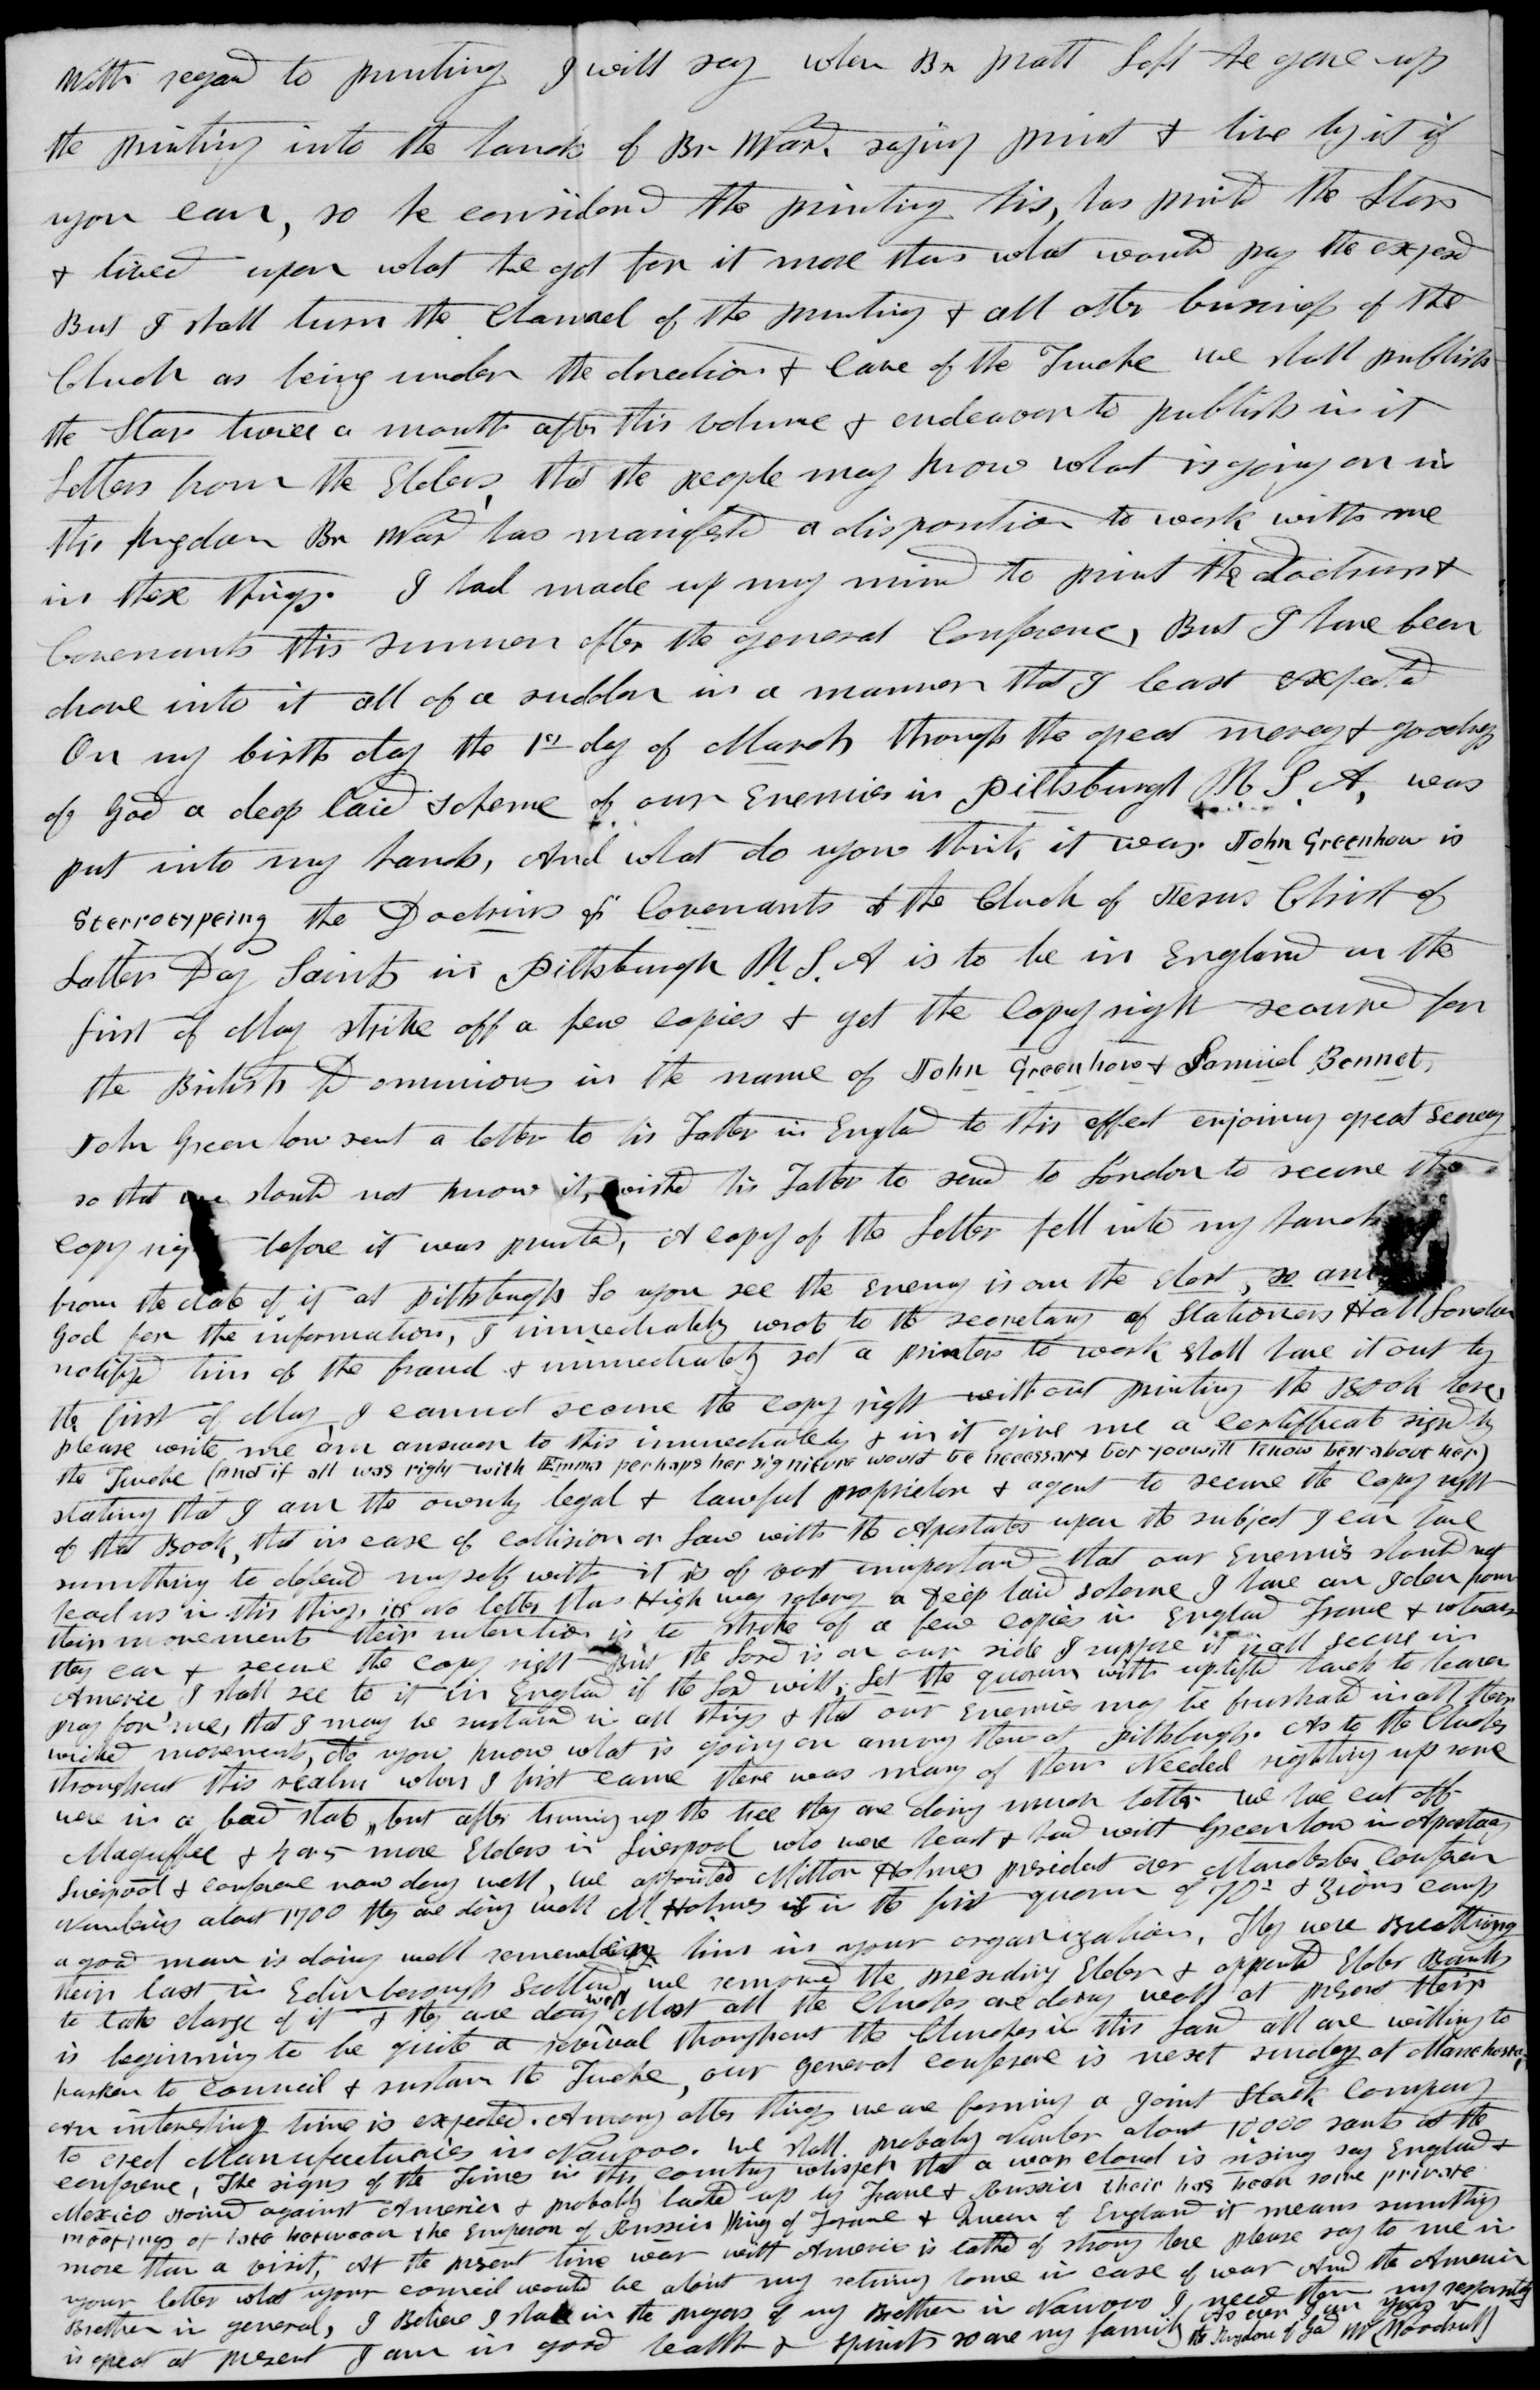 With regard to printing I will say when Br Pratt left he gave up
the printing into the hands of Br Ward. saying print & live by it if
you can, so he considerd the printing his, has printd the Stars
& lived upon what he got for it more than what would pay the expens
But I shall turn the Channel of the printing & all other business of the
Church as being under the direction & Care of the Twelve we shall publish
the Star twice a month after this volume & endeavor to publish in it
Letters from the Elders, that the people may know what is going on in
this kingdom Br Ward has manifestd a disposition to work with me
in these things. I had made up my mind to print the doctrins &
Covenants this summer after the general Conference, But I have been
drove into it all of a sudden in a manner that I least expectd
On my birth day the 1st day of March through the great mercy & goodness
of God a deep laid scheme of our Enemies in Pittsburgh U.S.A, was
put into my hands, And what do you think it was. John Greenhow is
Sterrotypeing the Doctrins & Covenants of the Church of Jesus Christ of
Latter Day Saints in Pittsburgh U.S.A is to be in England on the
first of May strike off a few copies & get the Copy right secured for
the British Dominions in the name of John Greenhow & Samuel Bennet,
John Greenhow sent a letter to his Father in Englad to this effect enjoining great Secrecy
so that we should not know it, wishd his Father to send to London to secure the
Copy right before it was printed, A copy of the Letter fell into my hands
from the date of it at Pittsburgh So you see the Enemy is on the alert, so am
God for the information, I immediately wrote to the secretary of Stationers Hall London
notifyd him of the fraud & immediately set a printer to work shall have it out by
the first of May I cannot secure the copy right without printing the Book here,
please write me an answer to this immediately & in it give me a certifficate signd by
the Twelve (And if all was right with Emma perhaps her signiture would be necessary but you will know best about her)
stating that I am the ownly legal & lawful proprietor & agent to secure the copy right
of that Book, that in case of collision or Law with the Apostates upon the subject I can have
sumthing to defend myself with it is of vast importance that our Enemies should not
head us in this thing, its no better than High way robery a deep laid scheme I have an Idea from
their movements their intention is to strike of a few copies in Englad France & whareever
they can & secure the copy right But the Lord is on our side I suppose it is all secure in
America I shall see to it in Englad if the Lord will, Let the quorum with uplifted hands to heaven
pray for me, that I may be sustaind in all things & that our Enemies may be frustrated in all their
wicked movements, do you know what is going on among them at Pittsburgh. As to the Churches
throughout this realm when I first came there was many of them Needed righting up some
were in a bad state, but after triming up the tree they are doing much better we have cut off
Maguffee & 4 or 5 more Elders in Liverpool who were heart & hand with Greenhow in Apostacy
Liverpool & conference now doing well, we appointed Milton Holmes president over Manchester conferen
Numbering about 1700 they are doing well M. Holmes is in the first quorum of 70s & Zions camp
a good man is doing well remember him in your organization, They were Breathing
their last in Edinborough Scotland, we removed the presiding Elder & appointd Elder Banks
to take charge of it & they are doing well Most all the Churches are doing well at present their
is beginning to be quite a revival throughout the Churches in this land all are willing to
harken to Council & sustain the Twelve, our general conference is next sunday at Manchester,
An interesting time is expected. Among other things we are forming a Joint Stock Company
to erect Manufacturies in Nauvoo. we shall probably Number about 10000 saints at the
conference, The signs of the Times in this country whispers that a war cloud is rising say England &
Mexico Joind against America & probably backed up by France & Russia their has been some private
meetings of late between the Emperor of Russia King of France & Queen of England it means sumthing
more than a visit, At the present time war with America is talked of strong here please say to me in
your letter what your council would be about my returning home in case of war And the American
Brethren in general, I Believe I share in the prayers of my Brethren in Nauvoo I need them my responsibility
is great at present I am in good health & spirits so are my family As ever I am yours in
the Kingdom of God W (Woodruff)